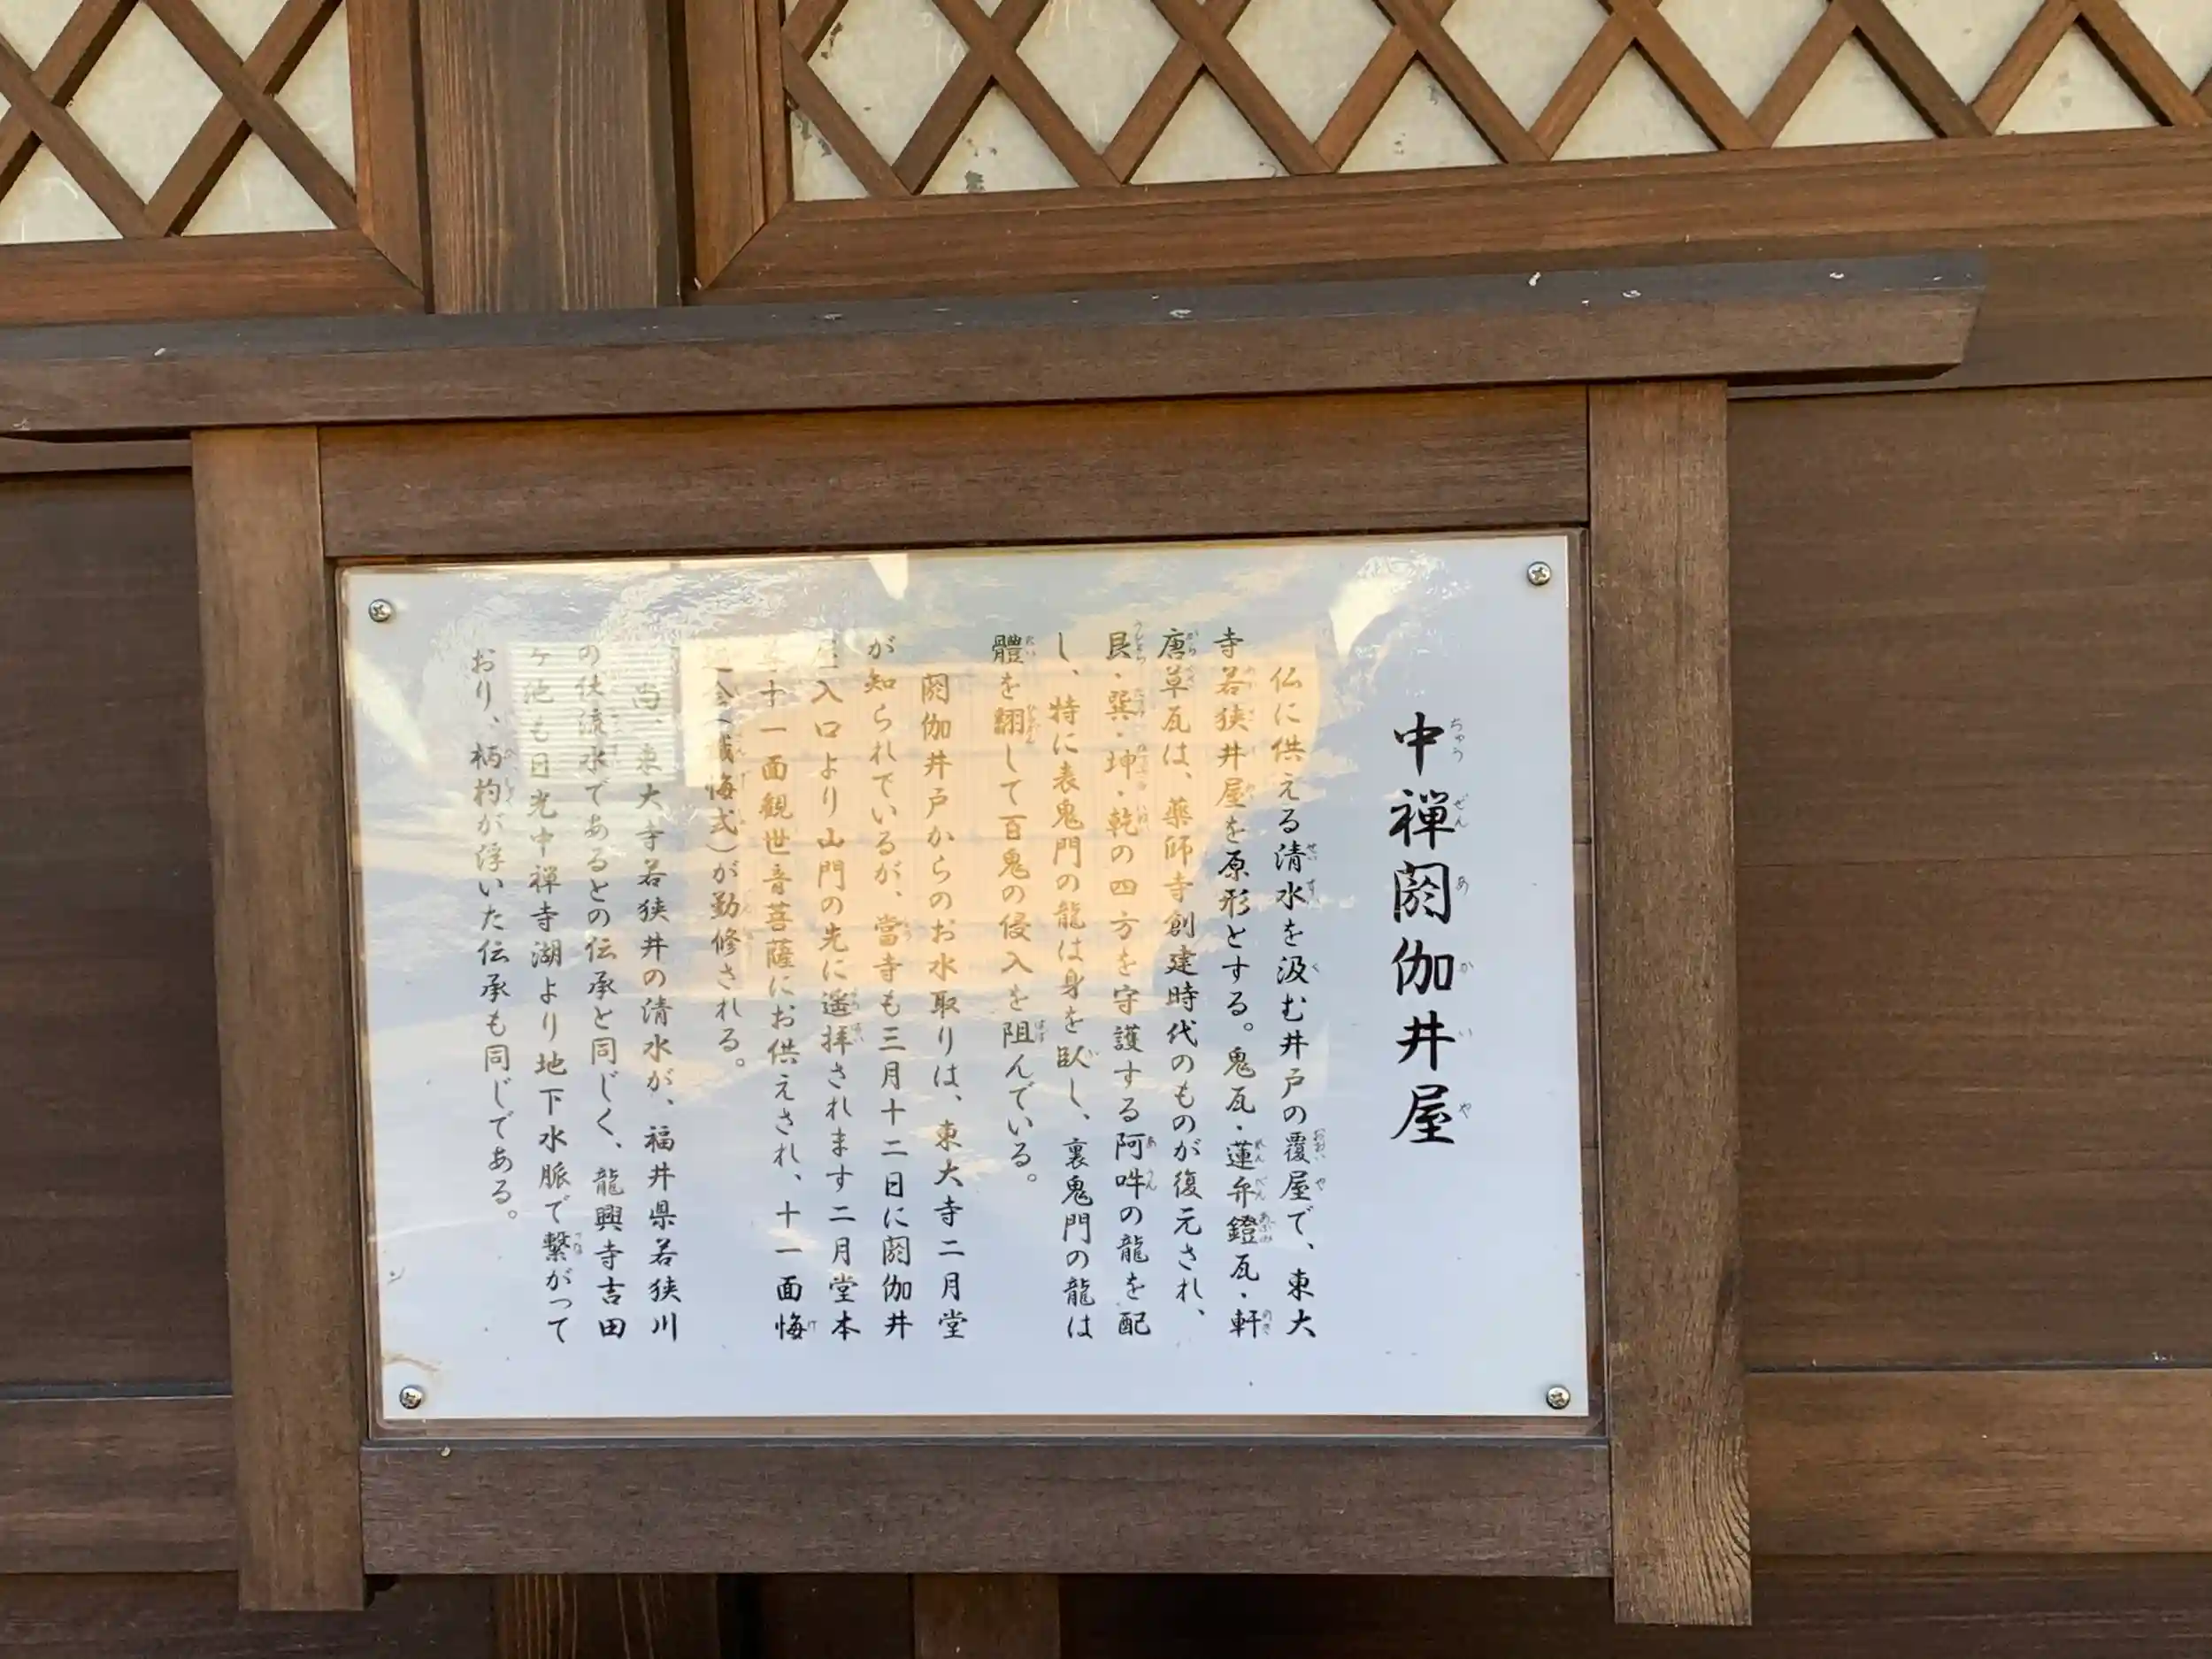 中禅閼伽井屋
仏に供える清水を汲む井戸の覆屋で、東大
寺若狭井屋を原形とする。鬼瓦・蓮弁鐙瓦・軒
唐草瓦は、薬師寺創建時代のものが復元され、
艮・巽・坤・乾の四方を守護する阿吽の龍を配
し、特に表鬼門の龍は身を臥し、裏鬼門の龍は
體を翻して百鬼の侵入を阻んでいる。
閼伽井戸からのお水取りは、東大寺二月堂
が知られているが、當寺も三月十二日に閼伽井
入口より山門の先に遙拝されます二月堂本
十一面観世音菩薩にお供えされ、十一面悔
悔式)が勤修される。
尚、東大寺若狭井の清水が、福井県若狭川
の伏流水であるとの伝承と同じく、龍興寺吉田
ヶ池も日光中禅寺湖より地下水脈で繋がって
おり、柄杓が浮いた伝承も同じである。